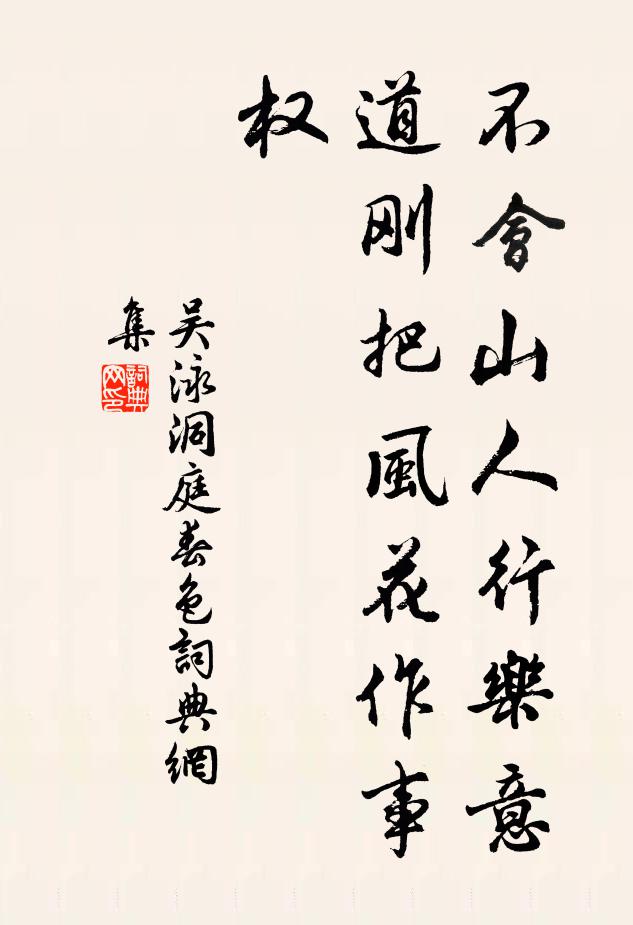 不會山人行樂意
道刚把風花作事
权
吴泳洞庭春色詞典網
集
詞典
网印